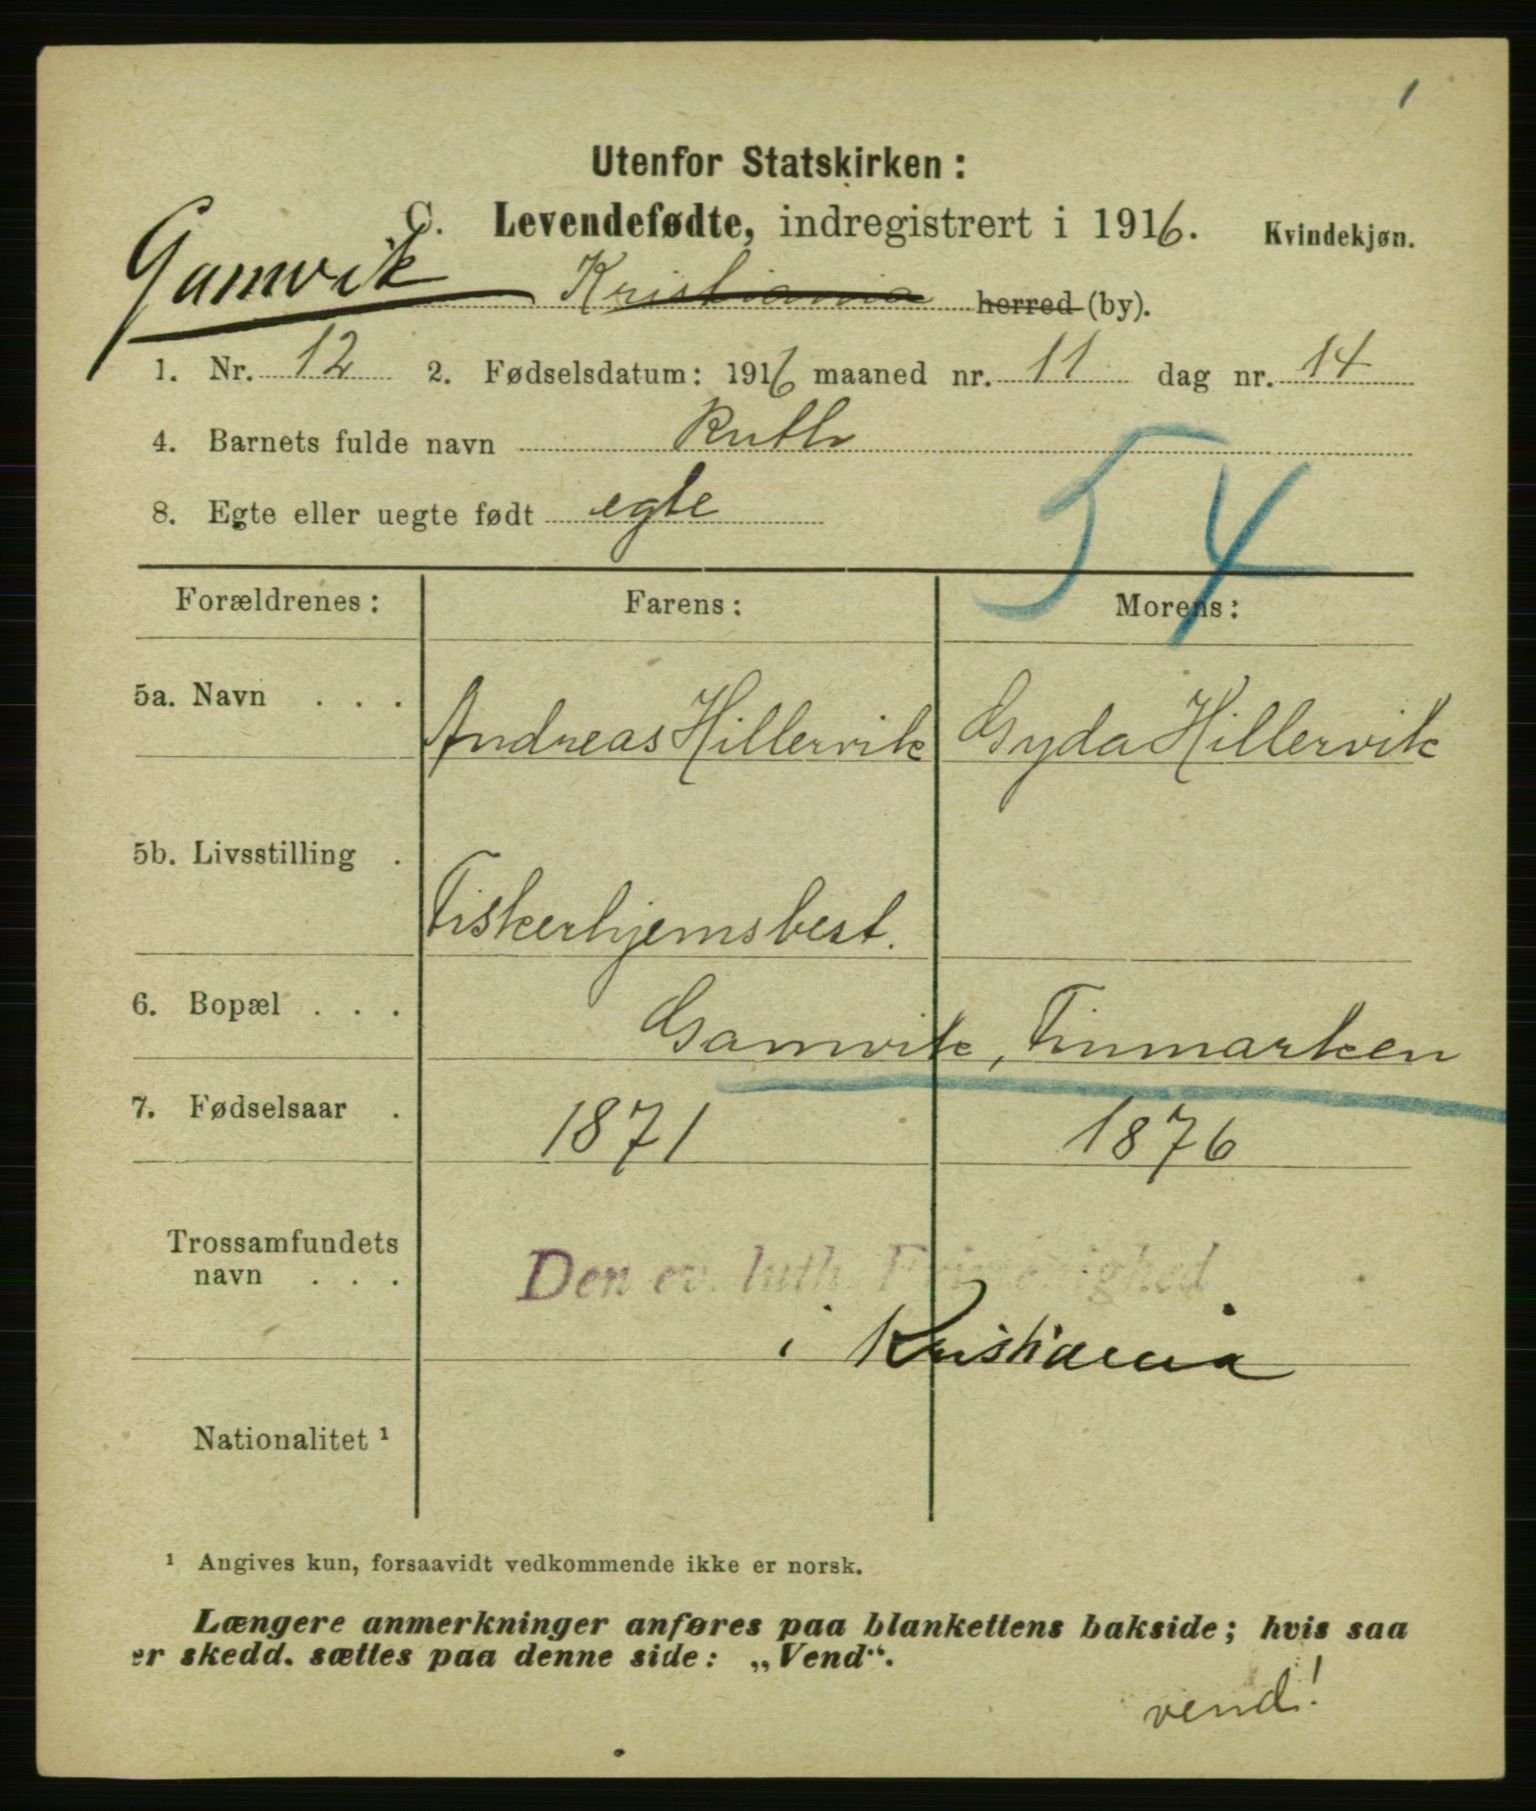 1
Utenfor Statskirken:
C. Levendefødte, indregistrert i 1916. Kvindekjøn.
Gamvik Kristiania herred (by).
1. Nr. 12 2. Fødselsdatum: 1916 maaned nr. 11 dag nr. 14
4. Barnets fulde navn Ruth
54
8. Egte eller uegte født egte
Forældrenes: Farens: Morens:
5a. Navn . . . Andreas Hillervik Gyda Hillervik
5b. Livsstilling . Fiskerhjemsbest.
6. Bopæl . . . Gamvik, Finmarken
7. Fødselsaar . 1871 1876
Trossamfundets
navn . . . Den ev. luth. Frimenighed
i Kristiania
Nationalitet ¹
¹ Angives kun, forsaavidt vedkommende ikke er norsk.
Længere anmerkninger anføres paa blankettens bakside; hvis saa
er skedd. sættes paa denne side: „Vend“.
vend!